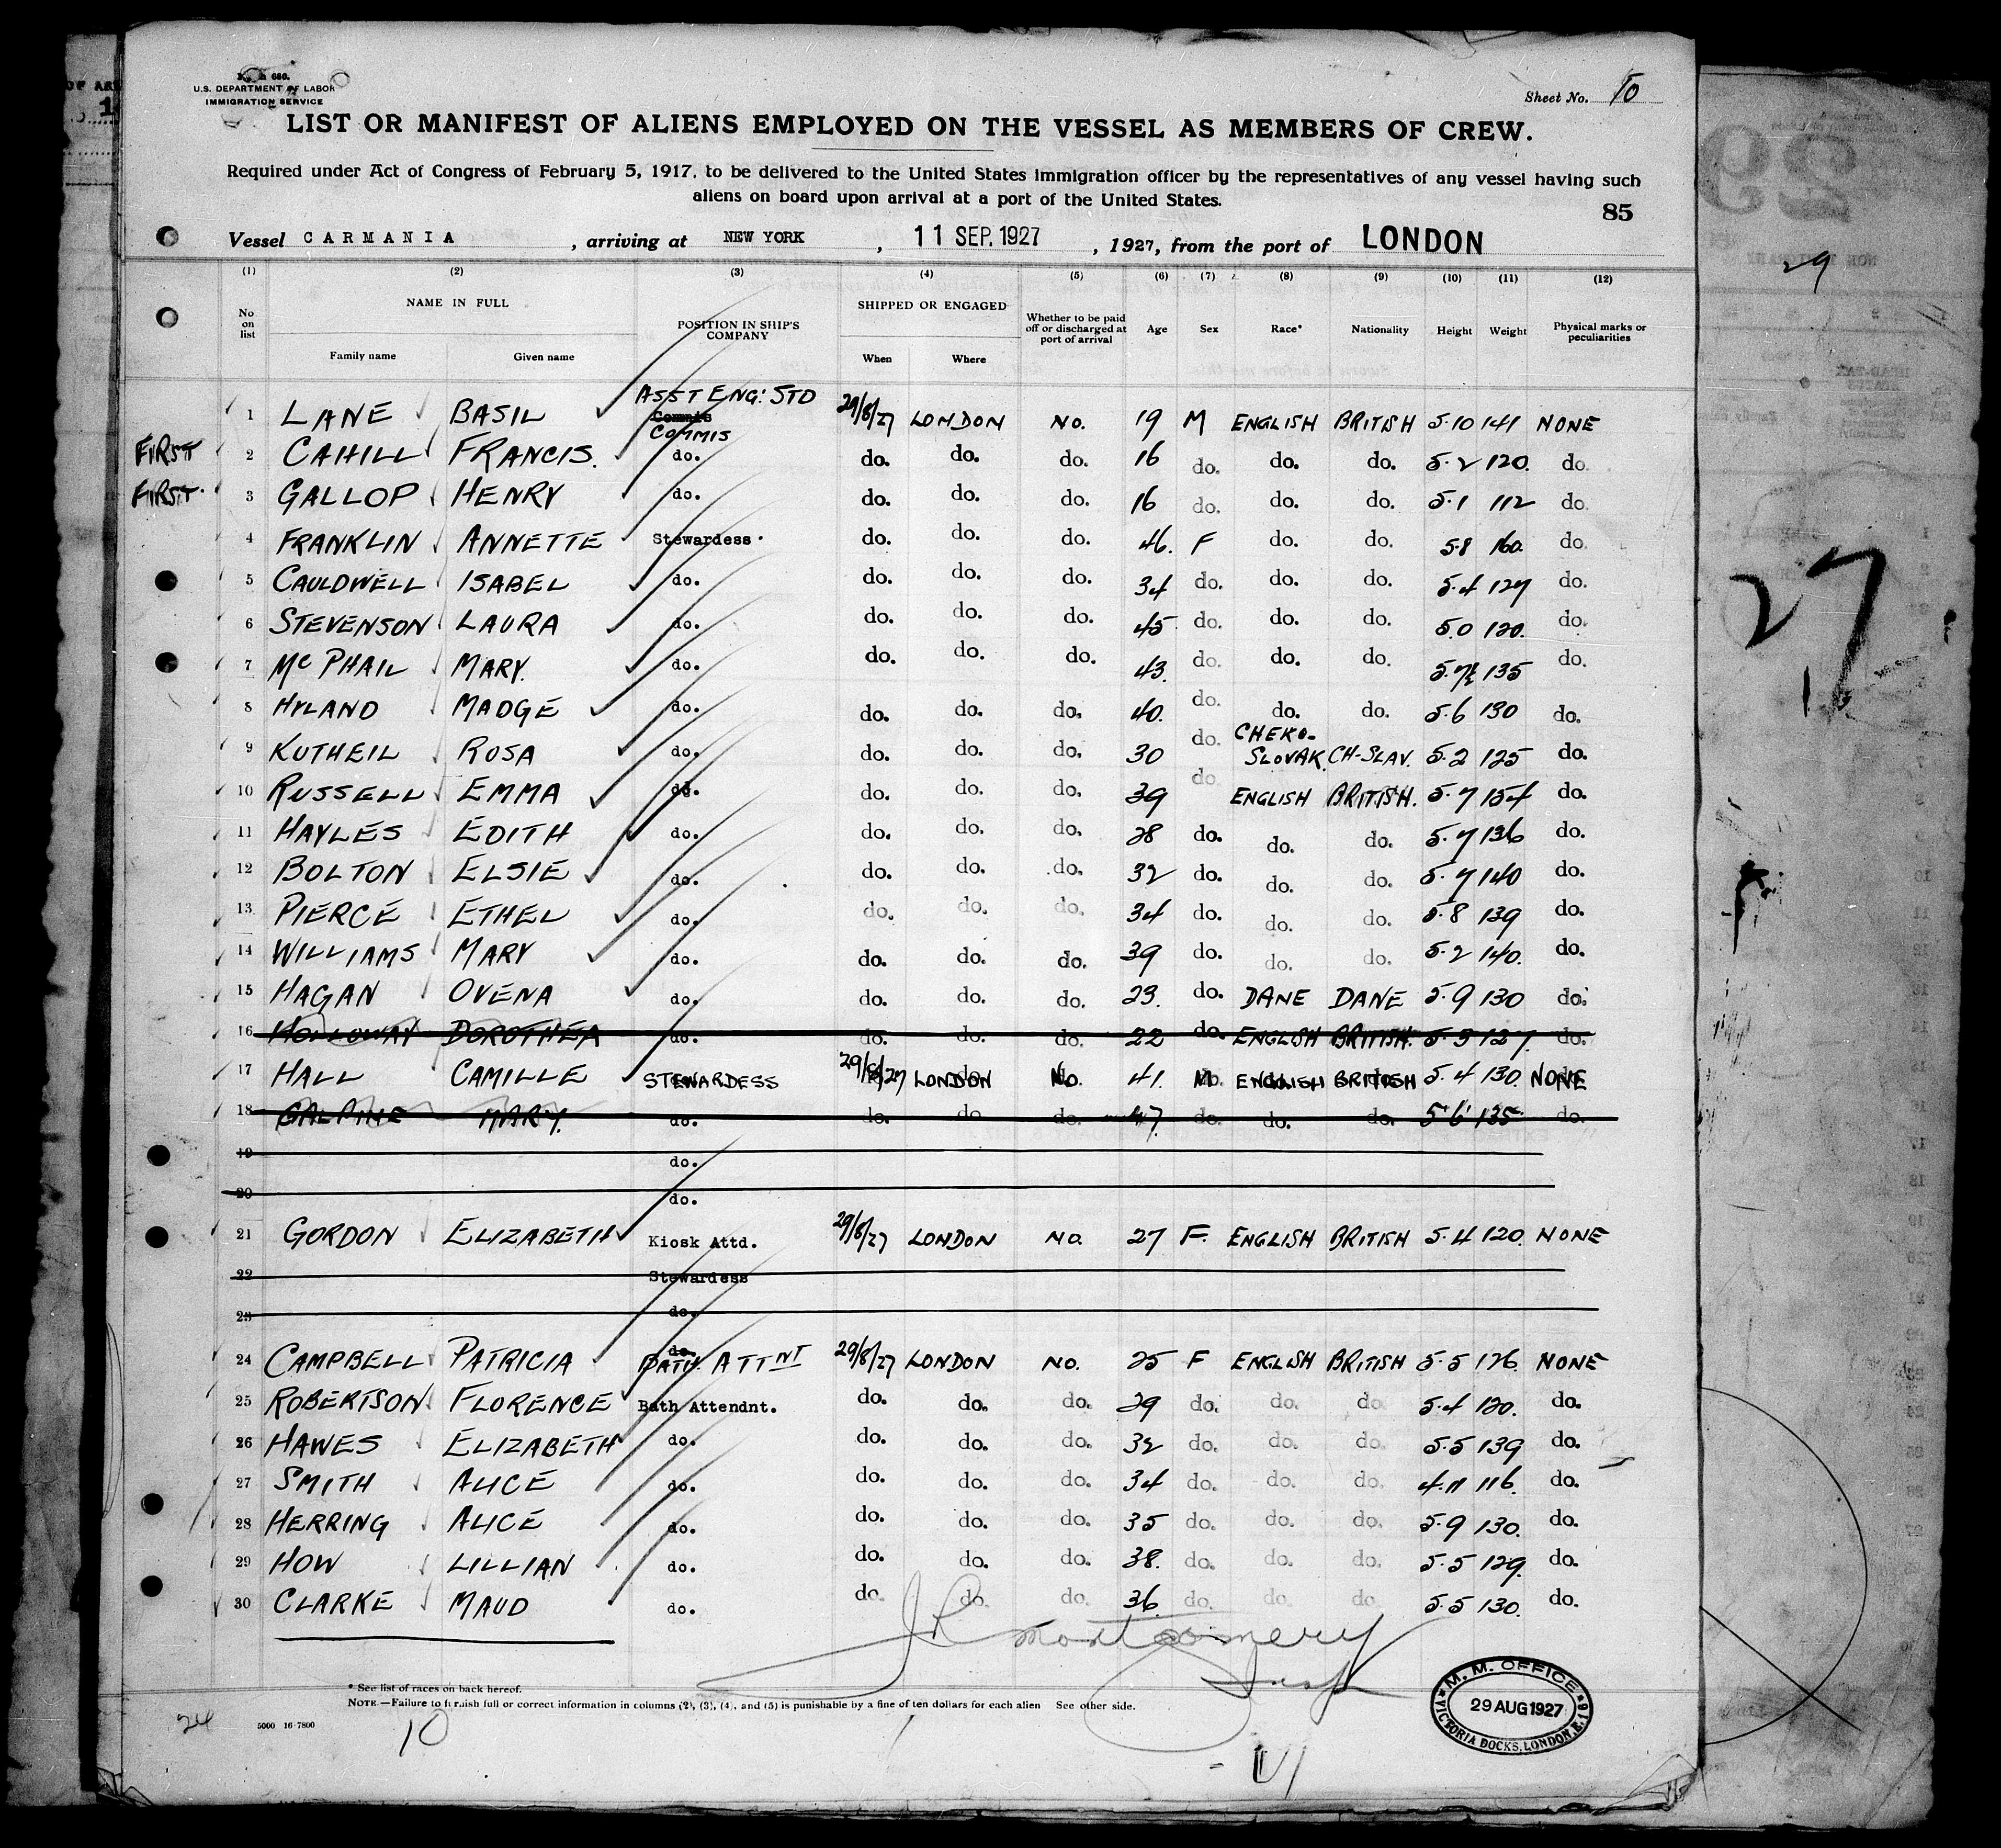 U.S. DEPARTMENT OF LABOR
IMMIGRATION SERVICE
Sheet No. 10
LIST OR MANIFEST OF ALIENS EMPLOYED ON THE VESSEL AS MEMBERS OF CREW.
Required under Act of Congress of February 5, 1917, to be delivered to the United States immigration officer by the representatives of any vessel having such
aliens on board upon arrival at a port of the United States.
85
Vessel CARMANIA, arriving at NEW YORK, 11 SEP. 1927, 1927, from the port of LONDON
(1) (2) (3) (4) (5) (6) (7) (8) (9) (10) (11) (12)
No on list NAME IN FULL Family name Given name POSITION IN SHIP'S COMPANY SHIPPED OR ENGAGED When Where Whether to be paid off or discharged at port of arrival Age Sex Race* Nationality Height Weight Physical marks or peculiarities
1 LANE BASIL ASST ENG: STD 29/8/27 LONDON NO. 19 M ENGLISH BRITISH 5.10 141 NONE
Commis
COMMIS
FIRST 2 CAHILL FRANCIS. do. do. do. do. 16 do. do. do. 5.2 120. do.
FIRST. 3 GALLOP HENRY do. do. do. do. 16 do. do. do. 5.1 112 do.
4 FRANKLIN ANNETTE Stewardess do. do. do. 46. F do. do. 5.8 160. do.
5 CAULDWELL ISABEL do. do. do. do. 34 do. do. do. 5.4 127 do.
6 STEVENSON LAURA do. do. do. do. 45 do. do. do. 5.0 120. do.
7 McPHAIL MARY. do. do. do. do. 43. do. do. do. 5.7½ 135 do.
8 HYLAND MADGE do. do. do. do. 40. do. do. do. 5.6 130 do.
9 KUTHEIL ROSA do. do. do. do. 30 do. CHEKO-SLOVAK. CH-SLAV. 5.2 125 do.
10 RUSSELL EMMA do. do. do. do. 39 do. ENGLISH BRITISH. 5.7 154 do.
11 HAYLES EDITH do. do. do. do. 28 do. do. do. 5.7 136 do.
12 BOLTON ELSIE do. do. do. do. 32 do. do. do. 5.7 140 do.
13 PIERCE ETHEL do. do. do. do. 34 do. do. do. 5.8 139 do.
14 WILLIAMS MARY do. do. do. do. 39 do. do. do. 5.2 140. do.
15 HAGAN OVENA do. do. do. do. 23. do. DANE DANE 5.9 130 do.
16 HOLLOWAY DOROTHEA do. do. do. do. 22 do. ENGLISH BRITISH. 5.3 127. do.
17 HALL CAMILLE STEWARDESS 29/8/27 LONDON NO. 41. M ENGLISH BRITISH 5.4 130. NONE
18 GALPINE MARY. do. do. do. do. 47. do. do. do. 5.6 135 do.
19 do.
20 do.
21 GORDON ELIZABETH Kiosk Attd. 29/8/27 LONDON NO. 27 F. ENGLISH BRITISH 5.4 120. NONE
22 Stewardess
23 do.
do.
24 CAMPBELL PATRICIA BATH ATTNT 29/8/27 LONDON NO. 25 F ENGLISH BRITISH 5.5 126. NONE
25 ROBERTSON FLORENCE Bath Attendnt. do. do. do. 29 do. do. do. 5.4 120. do.
26 HAWES ELIZABETH do. do. do. do. 32 do. do. do. 5.5 139 do.
27 SMITH ALICE do. do. do. do. 34 do. do. do. 4.11 116. do.
28 HERRING ALICE do. do. do. do. 35 do. do. do. 5.9 130. do.
29 HOW LILLIAN do. do. do. do. 38. do. do. do. 5.5 129. do.
30 CLARKE MAUD do. do. do. do. 36. do. do. do. 5.5 130. do.
J R Montgomery
* See list of races on back hereof.
NOTE.—Failure to furnish full or correct information in columns (2), (3), (4), and (5) is punishable by a fine of ten dollars for each alien See other side.
24
5000 16-7800
10
M. M. OFFICE
29 AUG 1927
VICTORIA DOCKS, LONDON, E.16
29
29
27